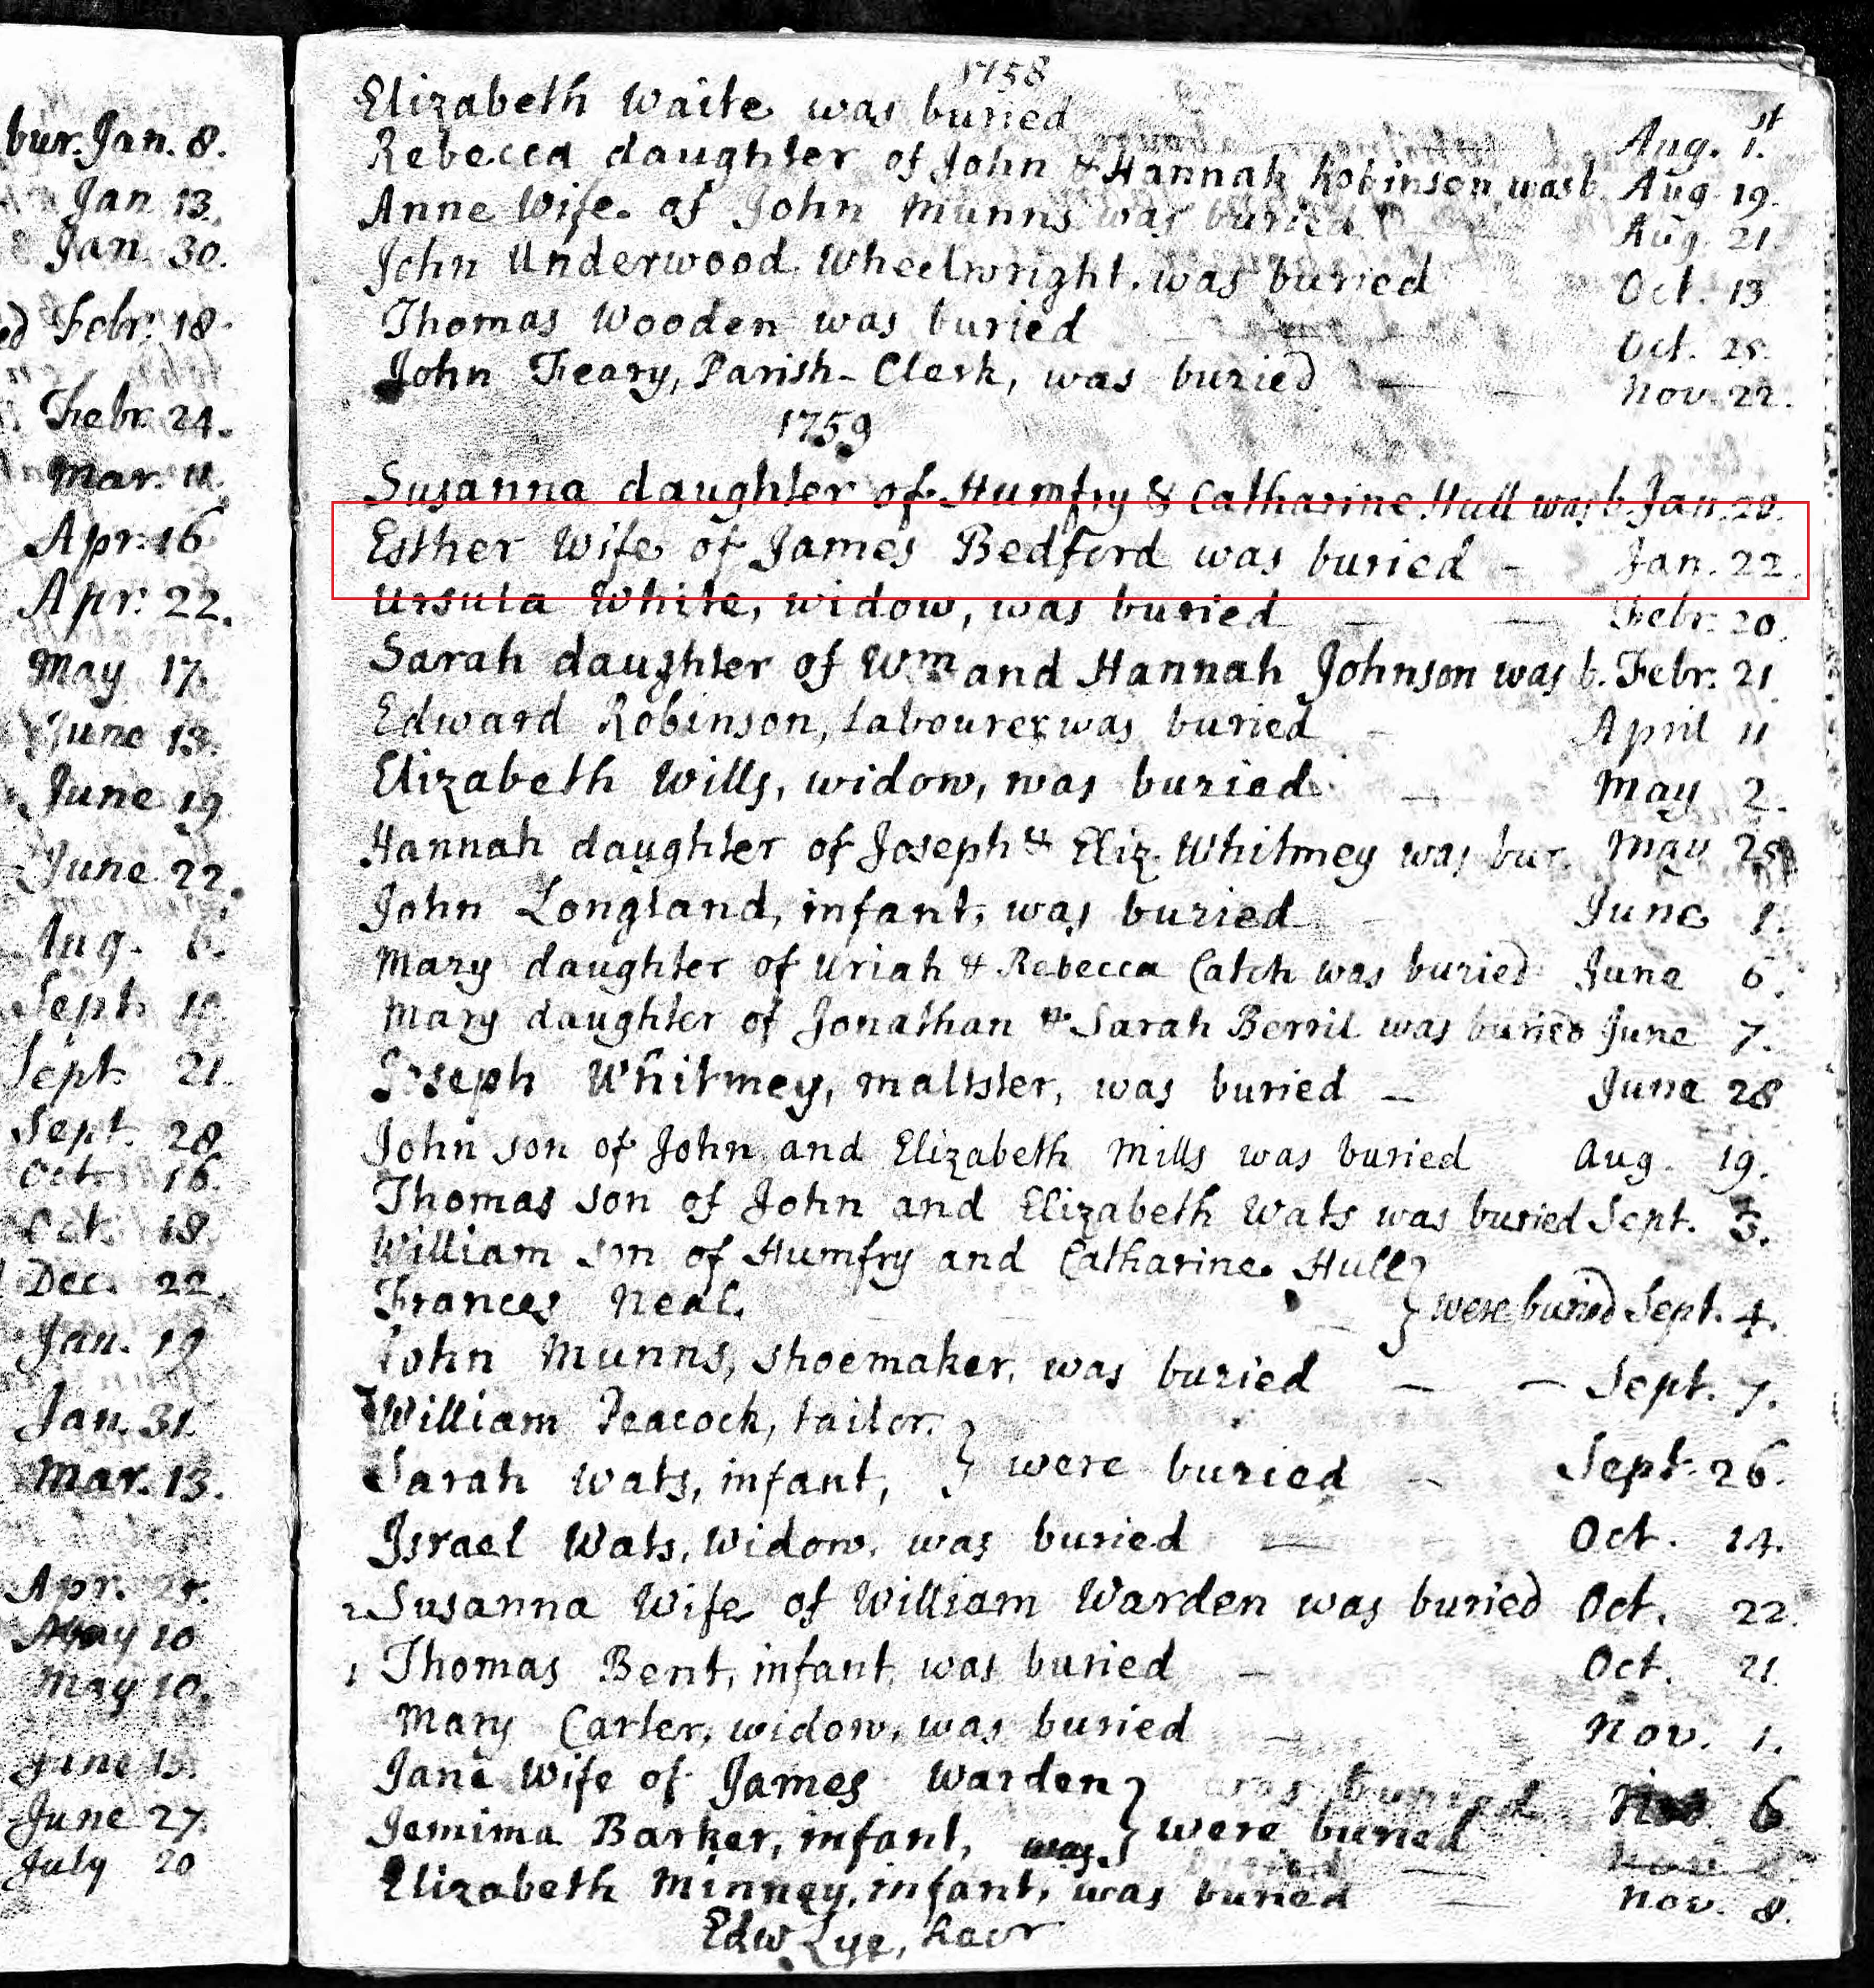 bur. Jan. 8.
Jan 13.
Jan. 30.
Febr. 18.
Febr. 24.
Mar. 11.
Apr. 16
Apr. 22.
May 17.
June 13.
June 19
June 22.
Aug. 6.
Sept.
Sept. 21.
Sept. 28
Oct. 16.
Oct. 18.
Dec. 22.
Jan. 19
Jan. 31.
Mar. 13.
Apr. 25.
May 10
May 10.
June 13.
June 27.
July 20
1758
Elizabeth Waite was buried Aug. 1.st
Rebecca daughter of John & Hannah Robinson was b. Aug. 19.
Anne Wife of John Munns was buried Aug. 21.
John Underwood Wheelwright, was buried Oct. 13
Thomas Wooden was buried Oct. 25.
John Feary, Parish-Clerk, was buried — — Nov. 22.
1759
Susanna daughter of Humfry & Catharine Hull was b. Jan. 20.
Esther Wife of James Bedford was buried — Jan. 22.
Ursula White, widow, was buried — — Febr. 20.
Sarah daughter of Wm and Hannah Johnson was b. Febr. 21
Edward Robinson, Labourer, was buried — April 11
Elizabeth Wills, widow, was buried — May 2.
Hannah daughter of Joseph & Eliz. Whitmey was bur. May 25
John Longland, infant, was buried — June 1.
Mary daughter of Uriah & Rebecca Catch was buried June 6.
Mary daughter of Jonathan & Sarah Berril was buried June 7.
Joseph Whitmey, maltster, was buried — June 28
John son of John and Elizabeth Mills was buried Aug. 19.
Thomas son of John and Elizabeth Wats was buried Sept. 3.
William son of Humfry and Catharine Hull
Frances Neal. } were buried Sept. 4.
John Munns, shoemaker, was buried — — Sept. 7.
William Peacock, tailor.
Sarah Wats, infant, } were buried — Sept. 26.
Israel Wats, Widow, was buried — Oct. 14.
2 Susanna Wife of William Warden was buried Oct. 22.
1 Thomas Bent, infant, was buried — Oct. 21.
Mary Carter, widow, was buried — Nov. 1.
Jane Wife of James Warden was buried 6
Jemima Barker, infant, was } were buried
Elizabeth Minney, infant, was buried — Nov. 8.
Edw. Lye, Recr